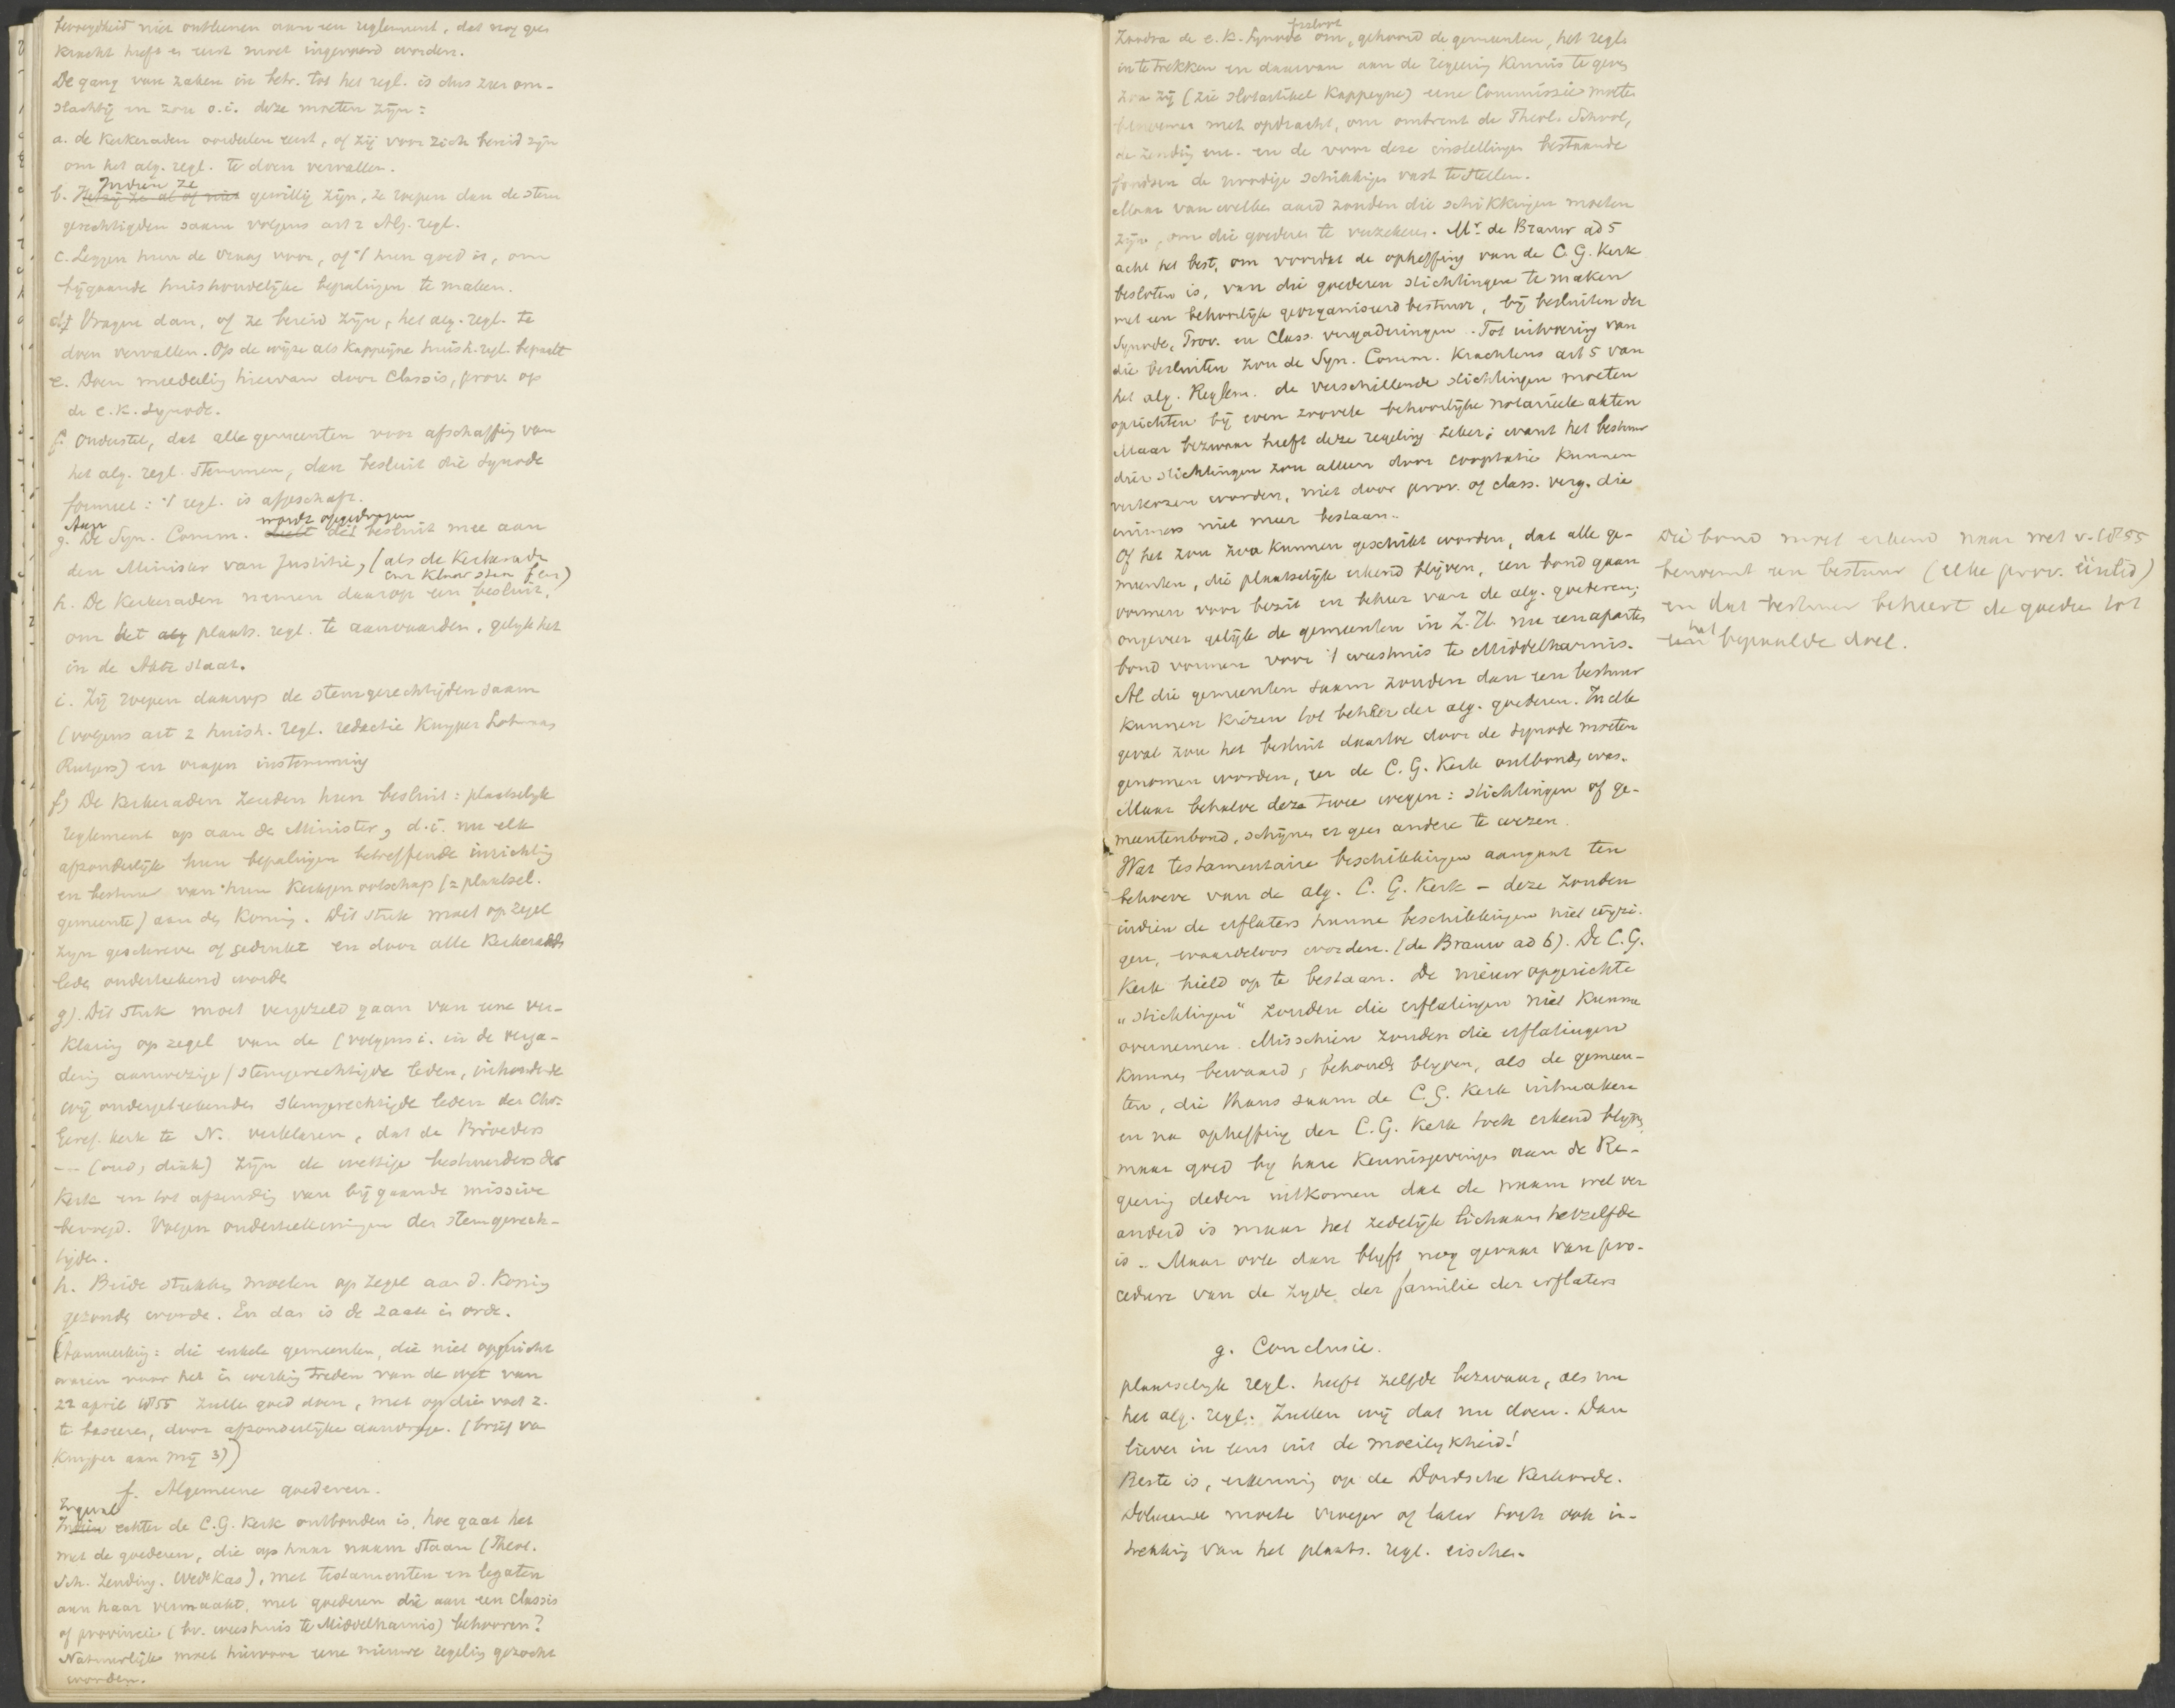 bevoegdheid niet ontleenen aan een reglement, dat nog geen
kracht heeft en eerst moet ingevoerd worden.
De gang van zaken in betr. tot het regl. is dus zeer om-
slachtig en zou o.i. deze moeten zijn:
a. de Kerkeraden oordeelen eerst, of zij voor zich bereid zijn
om het alg. regl. te doen vervallen.
Indien ze
b. Hetzij ze al of niet gewillig zijn, ze roepen dan de stem
gerechtigden saam volgens art 2 Alg. regl.
c. Leggen hun de vraag voor, of 't hun goed is, om
bijgaande huishoudelijke bepalingen te maken.
d. Vragen dan, of ze bereid zijn, het alg. regl. te
doen vervallen. Op de wijze als Kappeyne huish. regl. bepaalt
e. Doen mededeeling hiervan door Classis, prov. op
de e.k. Synode.
f. Ondersteld, dat alle gemeenten voor afschaffing van
het alg. regl. stemmen, dan besluit die Synode
formeel: 't regl. is afgeschaft.
Aan wordt opgedragen
g. De Syn. Comm. deelt dit besluit mee aan
den Minister van Justitie, (als de Kerkeraden
en klaar staan
h. De Kerkeraden nemen daarop een besluit,
om het alg plaats. regl. te aanvaarden, gelijk het
in de Akte staat.
i. Zij roepen daarop de stemgerechtigden saam
(volgens art 2 huish. regl. redactie Kuyper Lohman
Rutgers) en vragen instemming
f) De Kerkeraden zenden hun besluit: plaatselijk
reglement op aan de Minister, d.i. nu elk
afzonderlijk hun bepalingen betreffende inrichting
en bestuur van hun Kerkgenootschap (= plaatsel.
gemeente) aan den Koning. Dit stuk moet op zegel
zijn geschreven of gedrukt en door alle Kerkeraads
leden onderteekend worden
g). Dit stuk moet vergezeld gaan van eene ver-
klaring op zegel van de (volgens i. in de verga-
dering aanwezige) stemgerechtigde leden, inhoudende
wij ondergeteekenden stemgerechtigde leden der Chr.
Geref. kerk te N. verklaren, dat de Broeders
— (oud, diak) zijn de wettige bestuurders der
Kerk en tot afzending van bijgaande missive
bevoegd. Volgen onderteekeningen der stemgerech-
tigden.
h. Beide stukken moeten op zegel aan d. Koning
gezonden worden. En dan is de zaak in orde.
(Aanmerking: die enkele gemeenten, die niet opgericht
waren voor het in werking treden van de wet van
22 april 1855 zullen goed doen, met op die voet z.
te baseeren, door afzonderlijke aanvrage. (brief van
Kuyper aan mij 3))
f. Algemeene goederen.
Ingeval
Indien echter de C.G. Kerk ontbonden is, hoe gaat het
met de goederen, die op haar naam staan (Theol.
Sch. Zending. Wed.Kas), met testamenten en legaten
aan haar vermaakt, met goederen die aan een Classis
of provincie (bv. weeshuis te Middelharnis) behooren?
Natuurlijk moet hiervoor eene nieuwe regeling gezocht
worden.
besloot
Zoodra de e.k. Synode om, gehoord de gemeenten, het regl.
in te trekken en daarvan aan de regeering kennis te geven
zou zij (zie slotartikel Kappeyne) eene Commissie moeten
benoemen met opdracht, om omtrent de Theol. School,
de zending enz. en de voor deze instellingen bestaande
fondsen de noodige schikkingen vast te stellen.
Maar van welken aard zouden die schikkingen moeten
zijn, om die goederen te verzekeren. Mr. de Brauw ad 5
acht het best, om voordat de opheffing van de C.G. Kerk
besloten is, van die goederen stichtingen te maken
met een behoorlijk georganiseerd bestuur, bij besluiten der
Synode, Prov. en Class. vergaderingen. Tot uitvoering van
die besluiten zou de Syn. Comm. krachtens art 5 van
het alg. Reglem. de verschillende stichtingen moeten
oprichten bij even zoovele behoorlijke notarieele akten
Maar bezwaar heeft deze regeling zeker; want het bestuur
dier stichtingen zou alleen door cooptatie kunnen
verkozen worden, niet door prov. of class. verg. die
immers niet meer bestaan.
Of het zou zoo kunnen geschikt worden, dat alle ge-
meenten, die plaatselijk erkend blijven, een bond gaan
vormen voor bezit en beheer van de alg. goederen;
ongeveer gelijk de gemeenten in Z.H. nu een aparte
bond vormen voor 't weeshuis te Middelharnis.
Al die gemeenten saam zouden dan een bestuur
kunnen kiezen tot beheer der alg. goederen. In elk
geval zou het besluit daartoe door de Synode moeten
genomen worden, eer de C.G. Kerk ontbonden was.
Maar behalve deze twee wegen: stichtingen of ge-
meentenbond, schijnen er geen andere te wezen.
Wat testamentaire beschikkingen aangaat ten
behoeve van de alg. C.G. Kerk – deze zouden
indien de erflaters hunne beschikkingen niet wijzi-
gen, waardeloos worden. (de Brauw ad 6). De C.G.
Kerk hield op te bestaan. De nieuw opgerichte
„stichtingen" zouden die erflatingen niet kunnen
overnemen. Misschien zouden die erflatingen
kunnen bewaard, behouden blijven, als de gemeen-
ten, die thans saam de C.G. Kerk uitmaken
en na opheffing der C.G. Kerk toch erkend blijven,
maar goed bij hare kennisgevingen aan de Re-
geering deden uitkomen dat de naam wel ver
anderd is maar het zedelijk lichaam hetzelfde
is. Maar ook dan blijft nog gevaar van pro-
cedure van de zijde der familie der erflaters
g. Conclusie.
plaatselijk regl. heeft zelfde bezwaar, als nu
het alg. regl. Zullen wij dat nu doen. Dan
liever in eens uit de moeilijkheid!
Beste is, erkenning op de Dordsche Kerkorde.
Doleerende moeten vroeger of later toch ook in-
trekking van het plaats. regl. eischen.
Die bond moet erkend naar wet v. 1855
benoemt een bestuur (elke prov. één lid)
en dat bestuur beheert de goederen tot
het
een bepaalde doel.